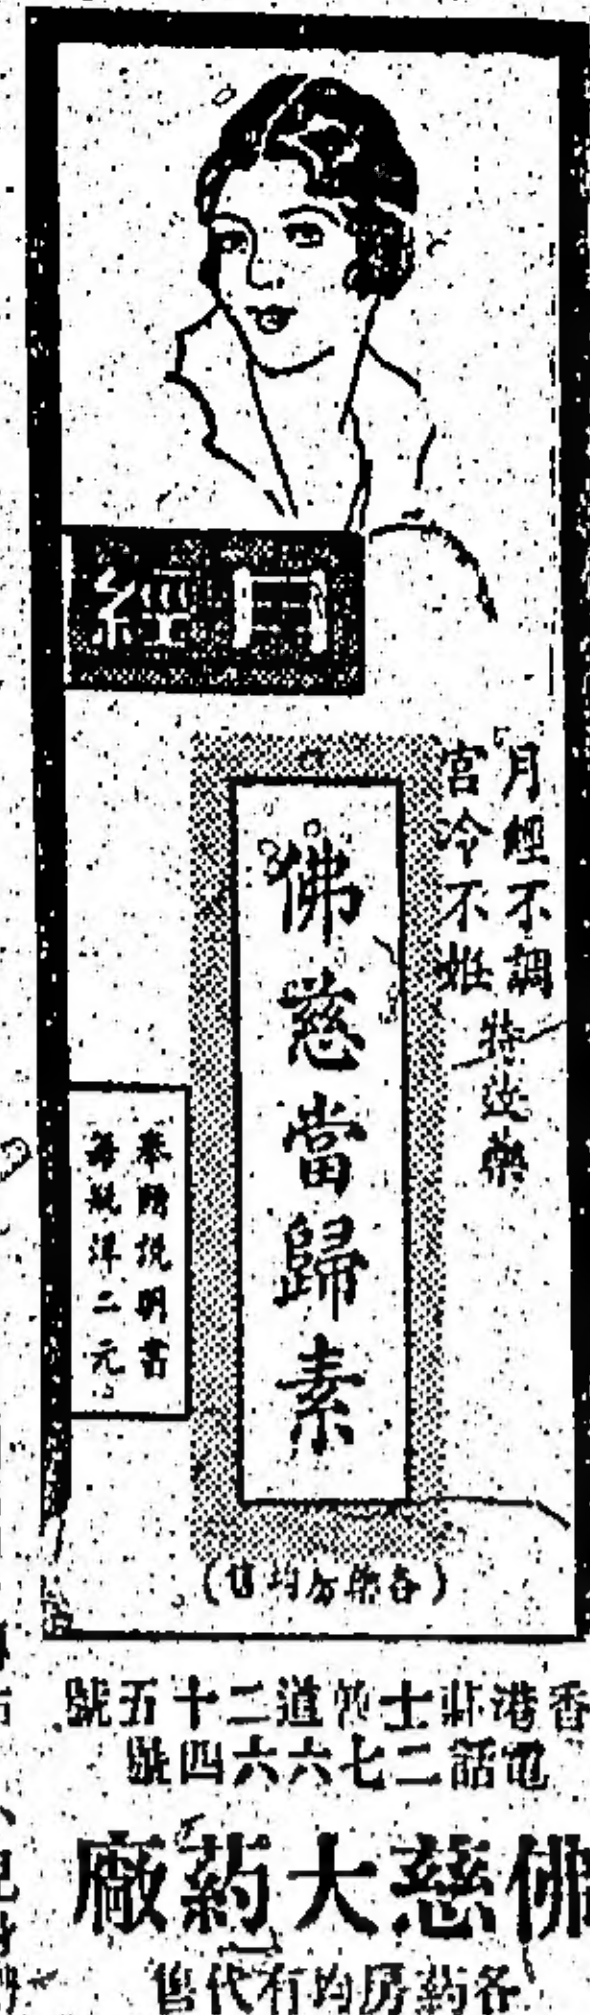 月經
月經不調
宮冷不姙
特效藥
佛慈當歸素
奉贈說明書
每瓶洋二元
(各藥房均售)
香港莊士道二十五號
電話二七六六四號
佛慈大葯廠
各葯房均有代售